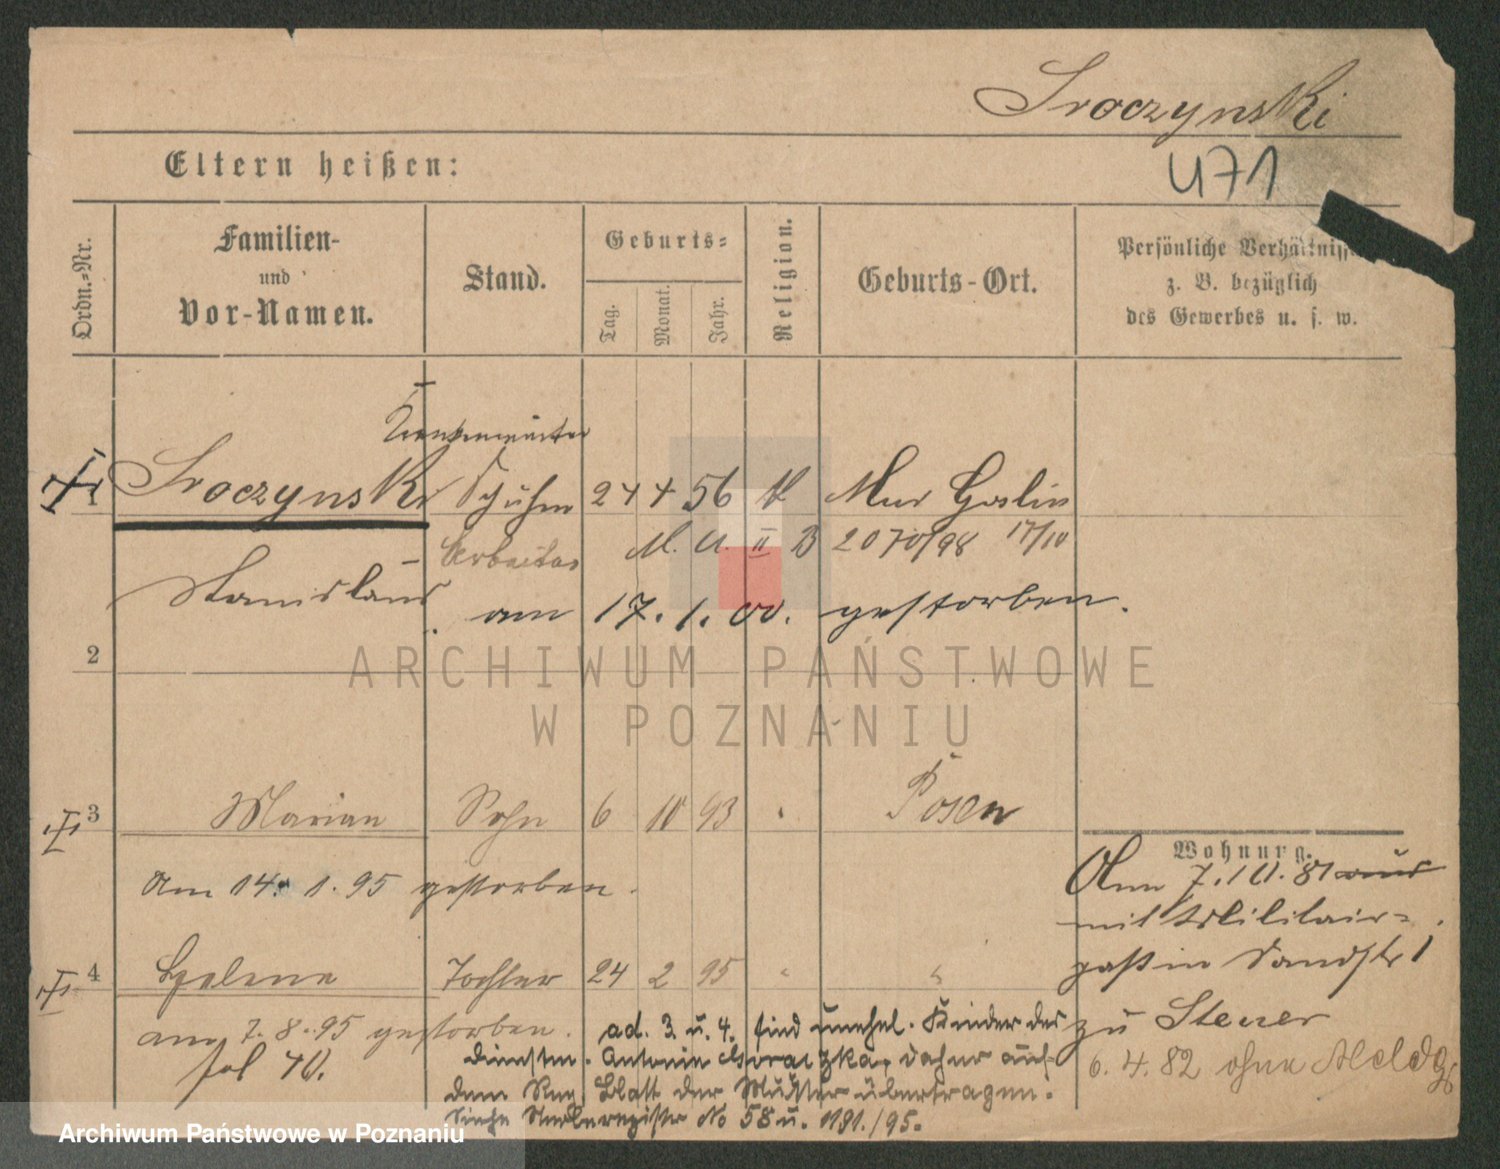 Sroczynski
471
Eltern heißen:
Ordn.-Nr.
Familien-
und
Vor-Namen.
Stand.
Geburts-
Tag.
Monat.
Jahr.
Religion.
Geburts-Ort.
Persönliche Verhältniss
z. B. bezüglich
des Gewerbes u. s. w.
1 Sroczynski 24 4 56 K Mur Goslin
Arbeiter M. U. II B 2070/98 17/10
Stanislaus am 17. 1. 00. gestorben.
2
ARCHIWUM PAŃSTWOWE
W POZNANIU
3 Marian Sohn 6 10 93 " Posen
Wohnung.
Am 14. 1. 95 gestorben.
Am 7. 10. 81 aus
mit Militair-
paß in Sandstr 1
4 Helene Tochter 24 2 95 " "
zu Steuer
am 7. 8. 95 gestorben.
fol 40.
6. 4. 82 ohne Meldg
ad. 3 u. 4. sind unehel. Kinder der
Antonie daher auf
dem Blatt der Mutter übertragen.
Siehe Sterberegister No 58 u. 1191./95.
Archiwum Państwowe w Poznaniu